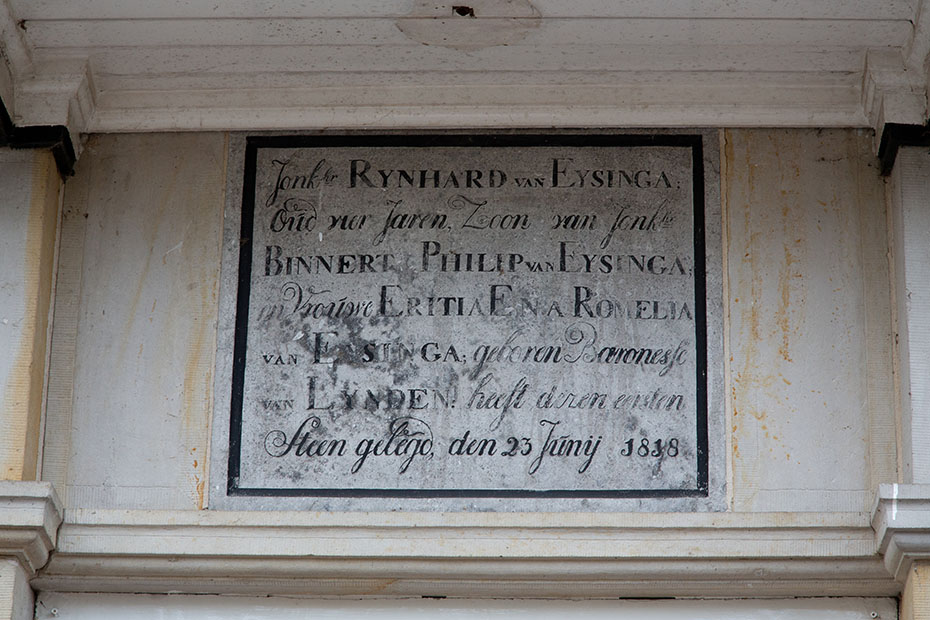 Jonkhr RYNHARD VAN EYSINGA;
Oud vier Jaren, Zoon van Jonkhr
BINNERT PHILIP VAN EYSINGA;
en Vrouwe ERITIA ENA ROMELIA
VAN EYSINGA; geboren Baronesse
VAN LYNDEN: heeft dezen eersten
Steen gelegd, den 23 Junij 1818